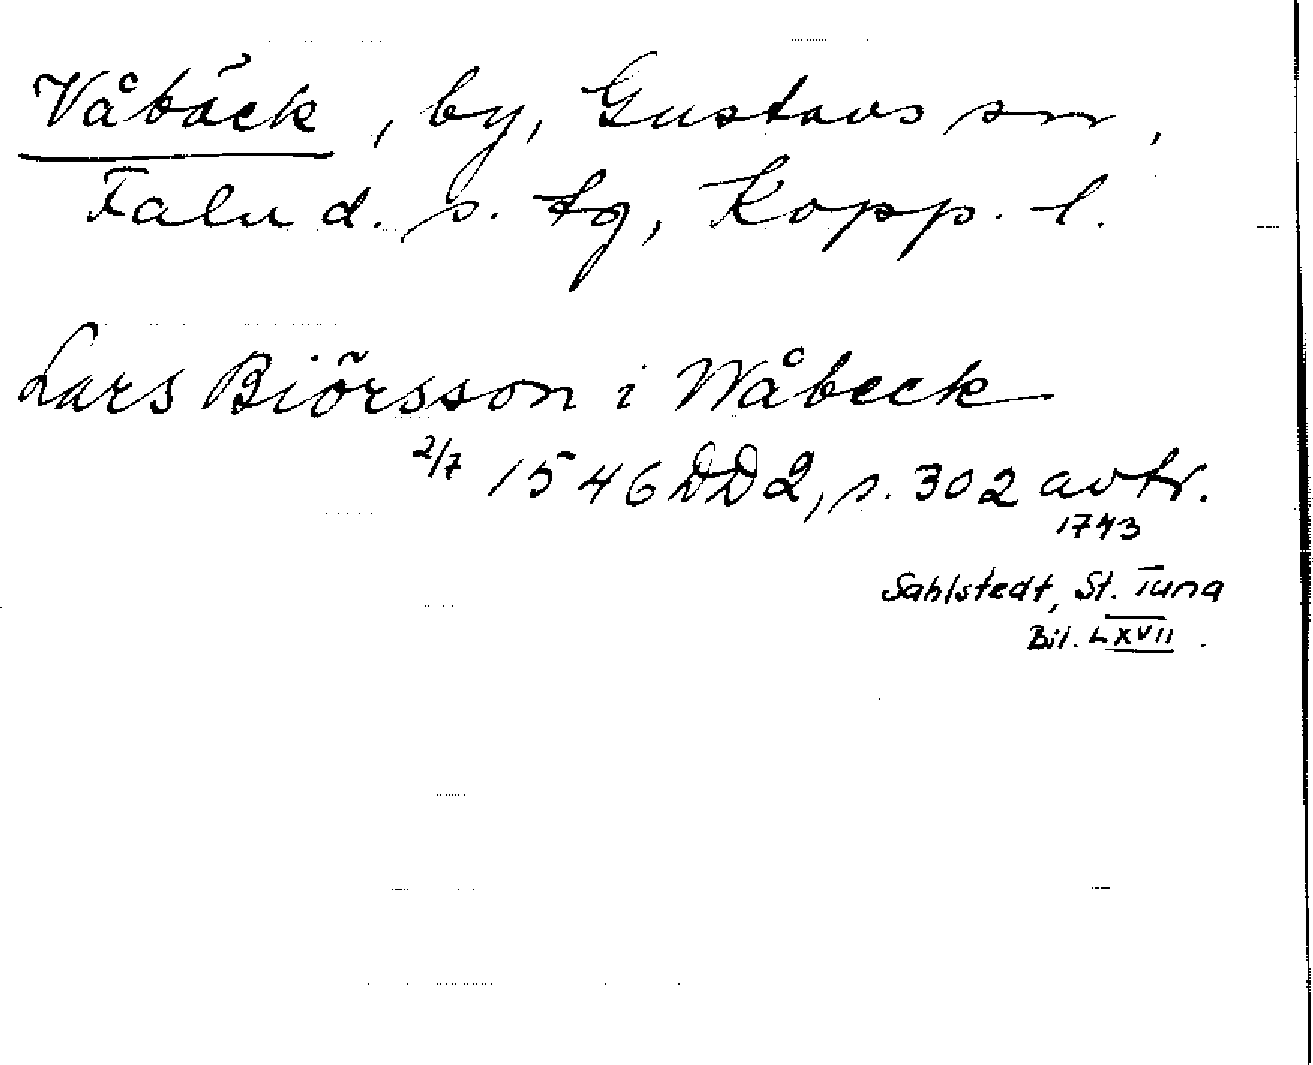 Våbäck, by, Gustavs sn,
Falu d. s. tg, Kopp. l.
Lars Biörsson i Wåbeck
2/7 1546 DD2, s. 302 avtr.
1743
Sahlstedt, St. Tuna
Bil. LXVII.